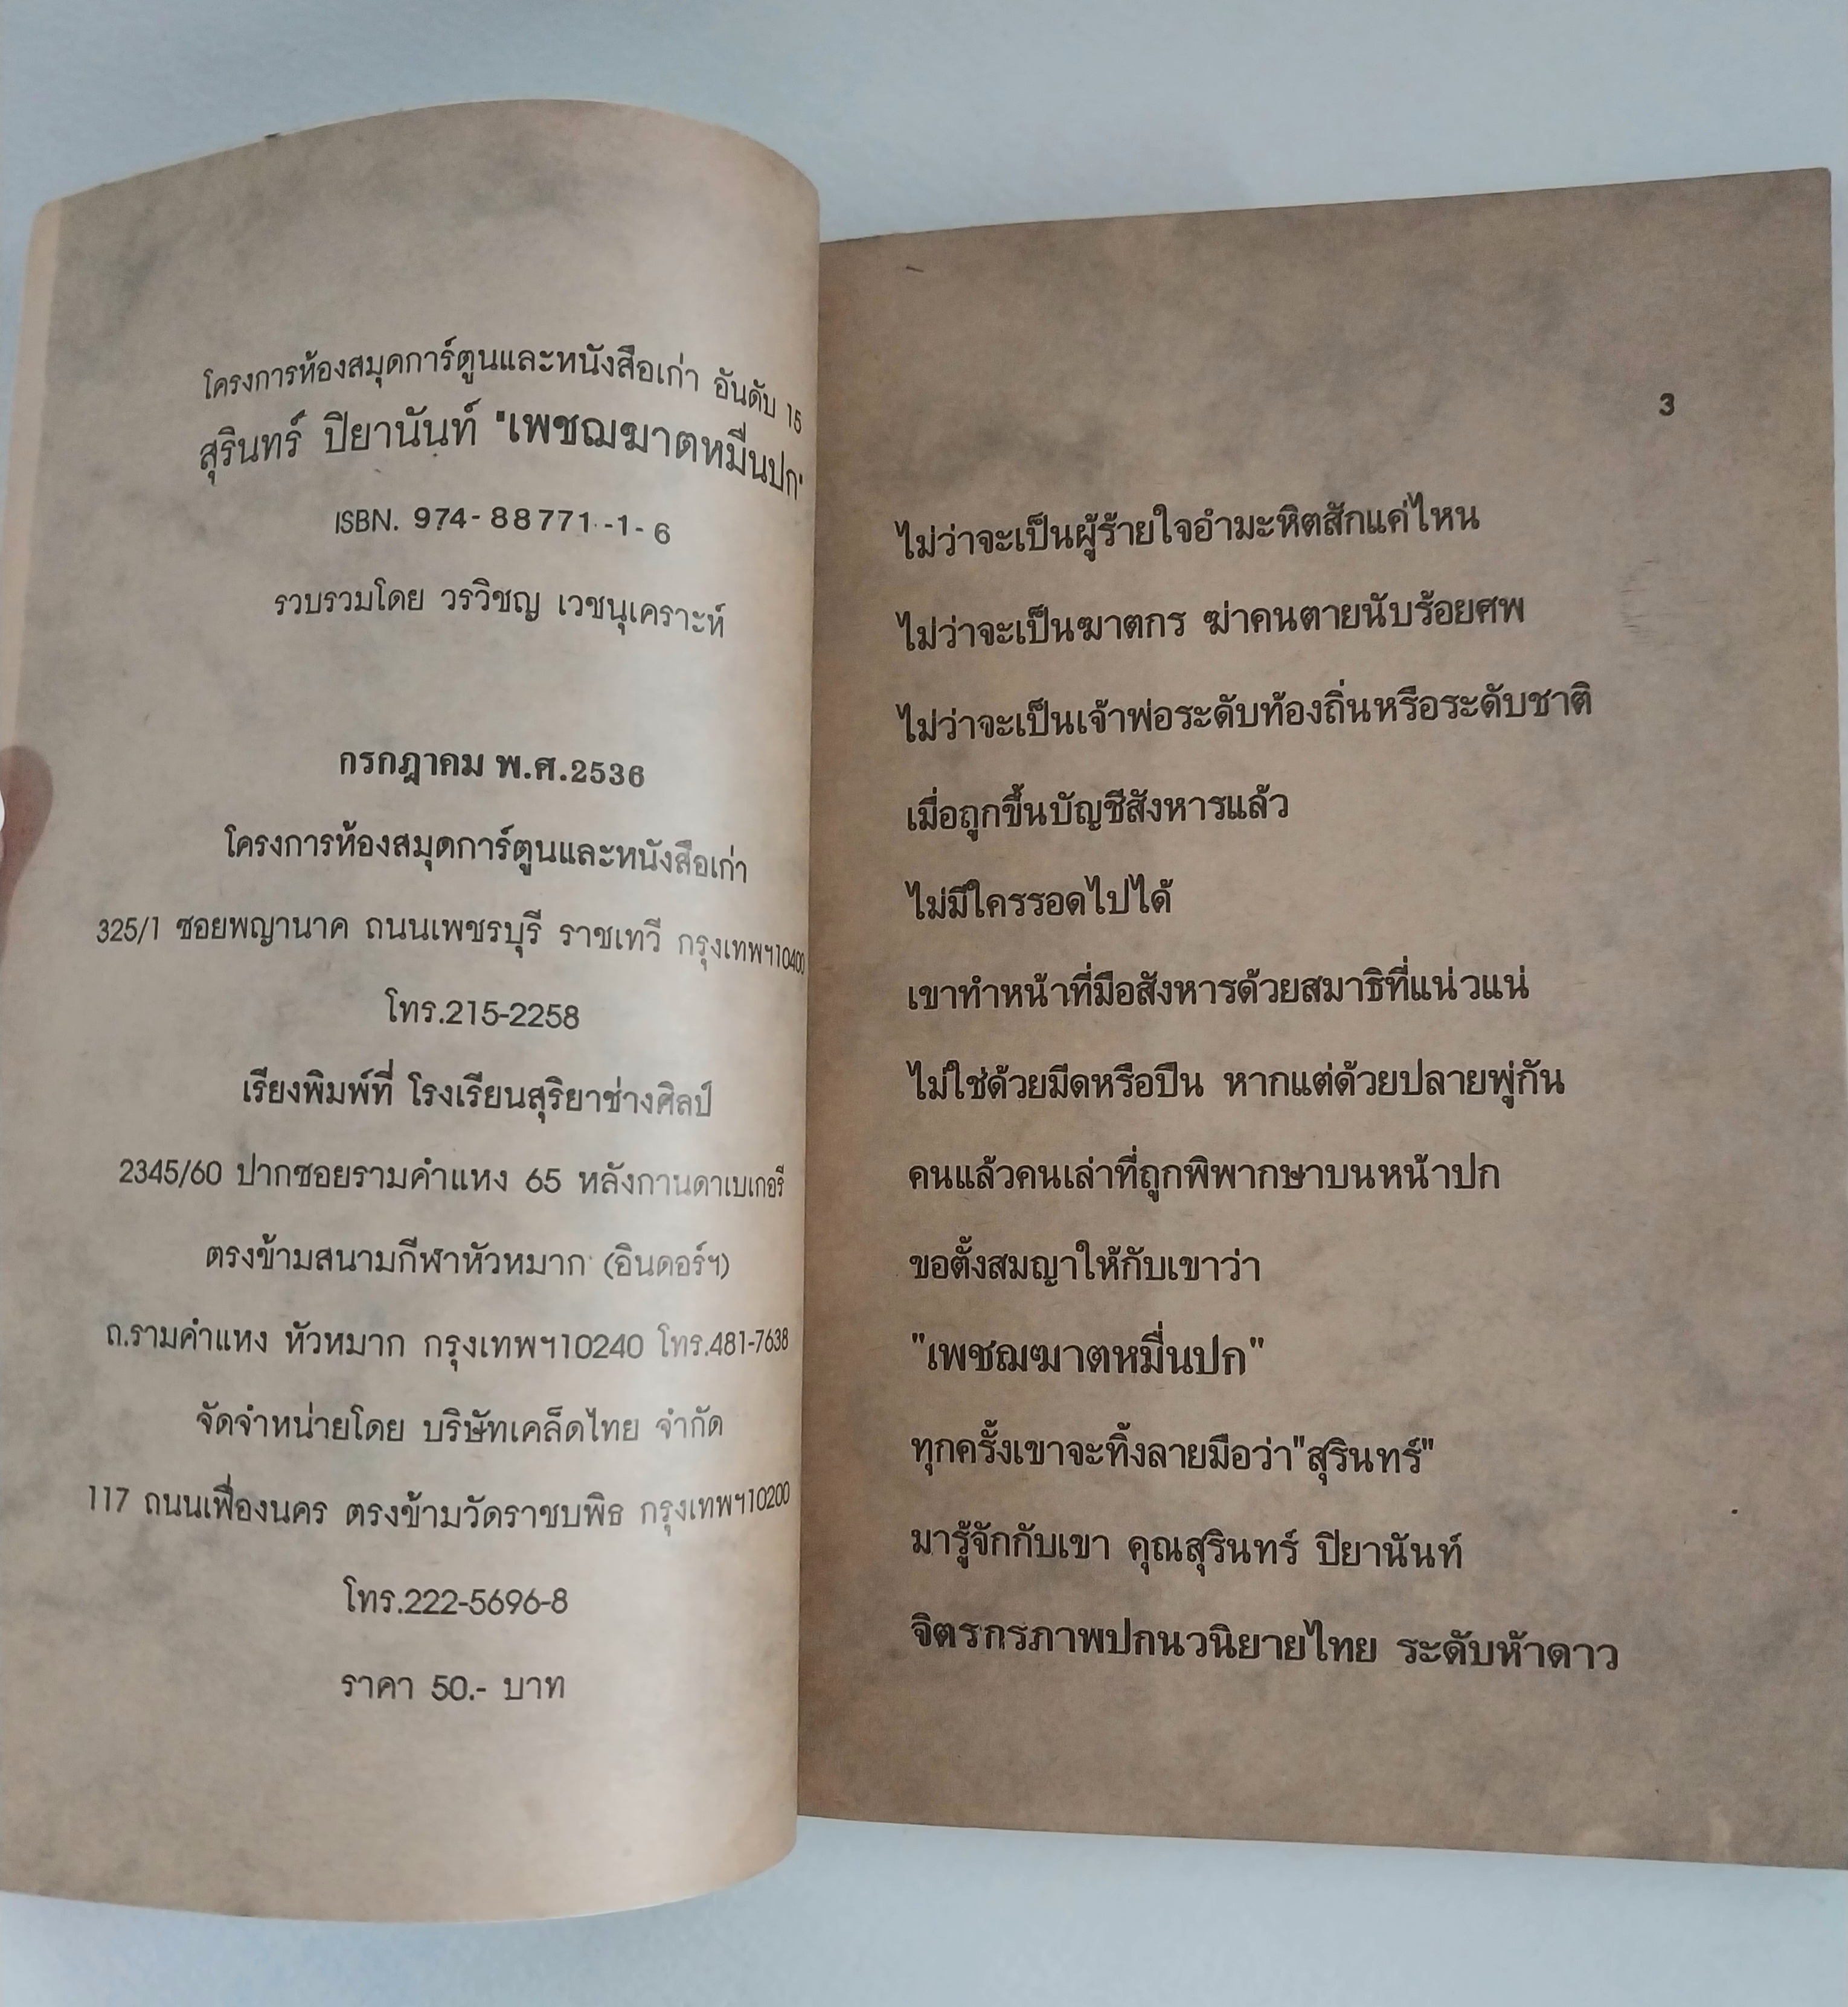 โครงการห้องสมุดการ์ตูนและหนังสือเก่า อันดับ 15
สุรินทร์ ปิยานันท์ "เพชฌฆาตหมื่นปก"
ISBN. 974-88771-1-6
รวบรวมโดย วรวิชญ เวชนุเคราะห์
กรกฎาคม พ.ศ.2536
โครงการห้องสมุดการ์ตูนและหนังสือเก่า
325/1 ซอยพญานาค ถนนเพชรบุรี ราชเทวี กรุงเทพฯ10400
โทร.215-2258
เรียงพิมพ์ที่ โรงเรียนสุริยาช่างศิลป์
2345/60 ปากซอยรามคำแหง 65 หลังกานดาเบเกอรี่
ตรงข้ามสนามกีฬาหัวหมาก (อินดอร์ฯ)
ถ.รามคำแหง หัวหมาก กรุงเทพฯ10240 โทร.481-7638
จัดจำหน่ายโดย บริษัทเคล็ดไทย จำกัด
117 ถนนเฟื่องนคร ตรงข้ามวัดราชบพิธ กรุงเทพฯ10200
โทร.222-5696-8
ราคา 50.- บาท
3
ไม่ว่าจะเป็นผู้ร้ายใจอำมะหิตสักแค่ไหน
ไม่ว่าจะเป็นฆาตกร ฆ่าคนตายนับร้อยศพ
ไม่ว่าจะเป็นเจ้าพ่อระดับท้องถิ่นหรือระดับชาติ
เมื่อถูกขึ้นบัญชีสังหารแล้ว
ไม่มีใครรอดไปได้
เขาทำหน้าที่มือสังหารด้วยสมาธิที่แน่วแน่
ไม่ใช่ด้วยมีดหรือปืน หากแต่ด้วยปลายพู่กัน
คนแล้วคนเล่าที่ถูกพิพากษาบนหน้าปก
ขอตั้งสมญาให้กับเขาว่า
"เพชฌฆาตหมื่นปก"
ทุกครั้งเขาจะทิ้งลายมือว่า"สุรินทร์"
มารู้จักกับเขา คุณสุรินทร์ ปิยานันท์
จิตรกรภาพปกนวนิยายไทย ระดับห้าดาว